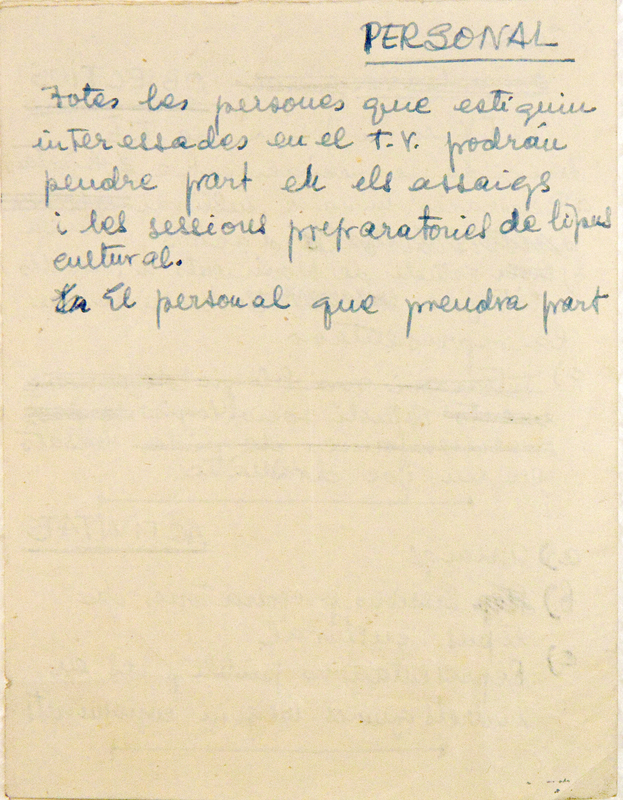 PERSONAL
Totes les persones que estiguin
interessades en el T.V. podrán
pendre part en els assaigs
i les sessions preparatories de tipus
cultural.
El personal que prendra part